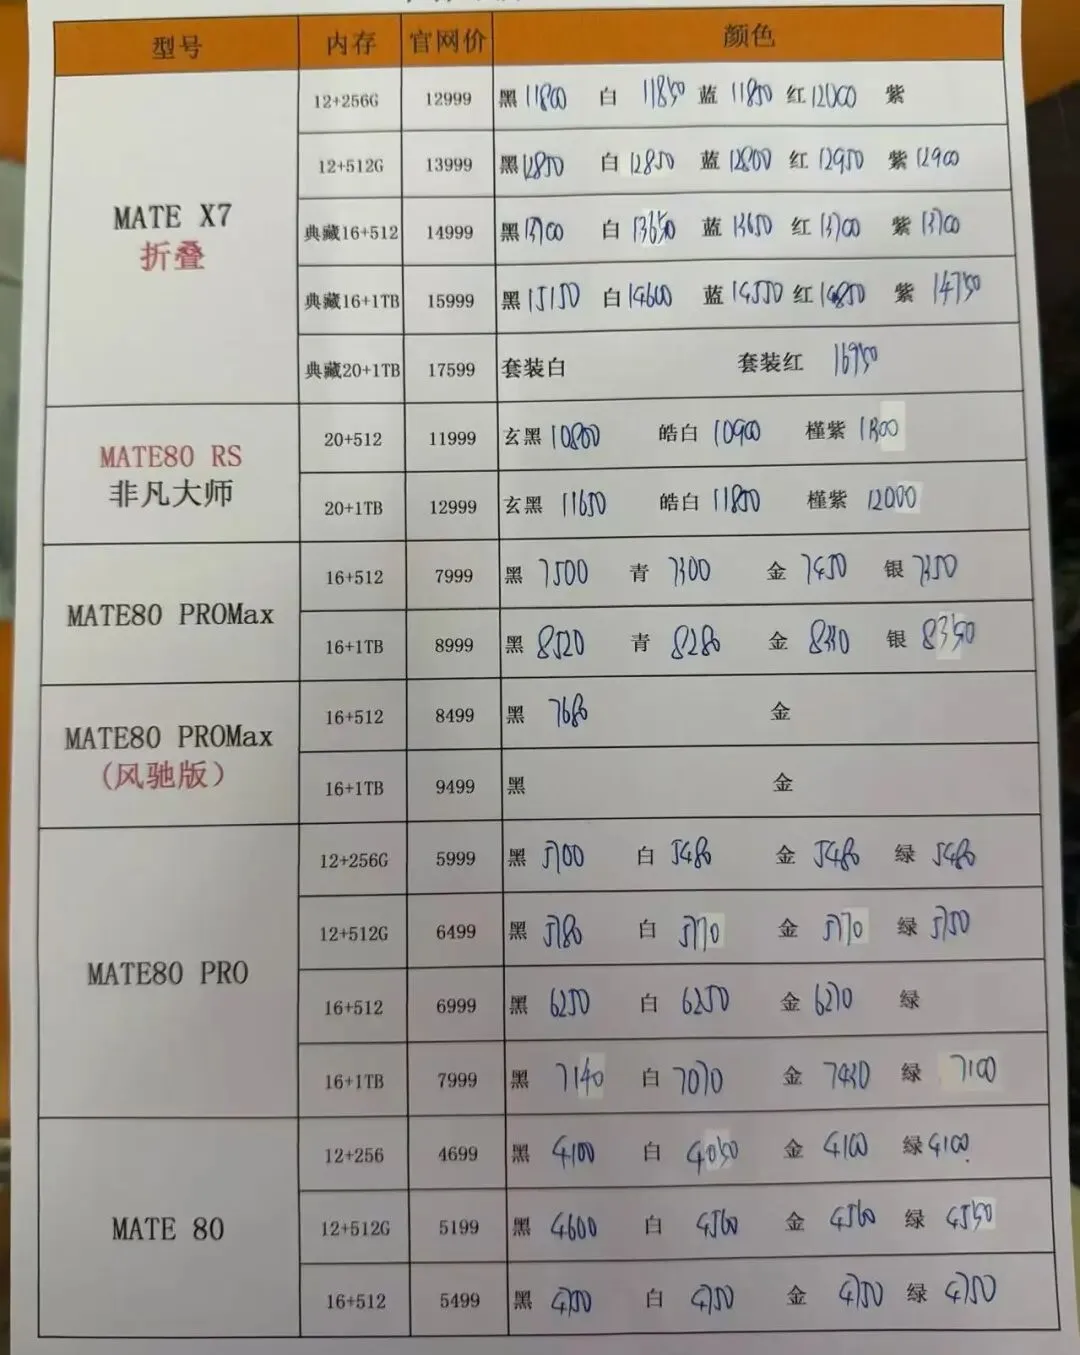 型号 内存 官网价 颜色
MATE X7
折叠
12+256G 12999 黑 11800 白 11850 蓝 11850 红 12000 紫
12+512G 13999 黑 12850 白 12850 蓝 12800 红 12950 紫 12900
典藏16+512 14999 黑 13700 白 13650 蓝 13650 红 13700 紫 13700
典藏16+1TB 15999 黑 15150 白 14600 蓝 14550 红 14850 紫 14750
典藏20+1TB 17599 套装白 套装红 16950
MATE80 RS
非凡大师
20+512 11999 玄黑 10800 皓白 10900 槿紫
20+1TB 12999 玄黑 11650 皓白 11850 槿紫 12000
MATE80 PROMax
16+512 7999 黑 7500 青 7300 金 7450 银 7350
16+1TB 8999 黑 8520 青 8280 金 银 8350
MATE80 PROMax
(风驰版)
16+512 8499 黑 7680 金
16+1TB 9499 黑 金
MATE80 PRO
12+256G 5999 黑 5700 白 5480 金 5480 绿 5480
12+512G 6499 黑 5780 白 5770 金 5770 绿 5750
16+512 6999 黑 6250 白 6250 金 6270 绿
16+1TB 7999 黑 7140 白 7070 金 绿 7100
MATE 80
12+256 4699 黑 4100 白 4050 金 4100 绿 4100
12+512G 5199 黑 4600 白 4560 金 4560 绿 4550
16+512 5499 黑 4750 白 4750 金 4750 绿 4750